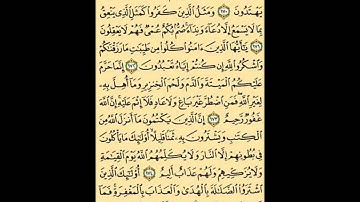 يَهْتَدُونَ ١٧٠ وَمَثَلُ الَّذِينَ كَفَرُوا كَمَثَلِ الَّذِي يَنْعِقُ
بِمَا لَا يَسْمَعُ إِلَّا دُعَاءً وَنِدَاءً صُمٌّ بُكْمٌ عُمْيٌ فَهُمْ لَا يَعْقِلُونَ
١٧١ يَا أَيُّهَا الَّذِينَ آمَنُوا كُلُوا مِن طَيِّبَاتِ مَا رَزَقْنَاكُمْ
وَاشْكُرُوا لِلَّهِ إِن كُنتُمْ إِيَّاهُ تَعْبُدُونَ ١٧٢ إِنَّمَا حَرَّمَ
عَلَيْكُمُ الْمَيْتَةَ وَالدَّمَ وَلَحْمَ الْخِنزِيرِ وَمَا أُهِلَّ بِهِ
لِغَيْرِ اللَّهِ فَمَنِ اضْطُرَّ غَيْرَ بَاغٍ وَلَا عَادٍ فَلَا إِثْمَ عَلَيْهِ إِنَّ اللَّهَ
غَفُورٌ رَّحِيمٌ ١٧٣ إِنَّ الَّذِينَ يَكْتُمُونَ مَا أَنزَلَ اللَّهُ مِنَ
الْكِتَابِ وَيَشْتَرُونَ بِهِ ثَمَنًا قَلِيلًا أُولَٰئِكَ مَا يَأْكُلُونَ
فِي بُطُونِهِمْ إِلَّا النَّارَ وَلَا يُكَلِّمُهُمُ اللَّهُ يَوْمَ الْقِيَامَةِ
وَلَا يُزَكِّيهِمْ وَلَهُمْ عَذَابٌ أَلِيمٌ ١٧٤ أُولَٰئِكَ الَّذِينَ
اشْتَرَوُا الضَّلَالَةَ بِالْهُدَىٰ وَالْعَذَابَ بِالْمَغْفِرَةِ فَمَا